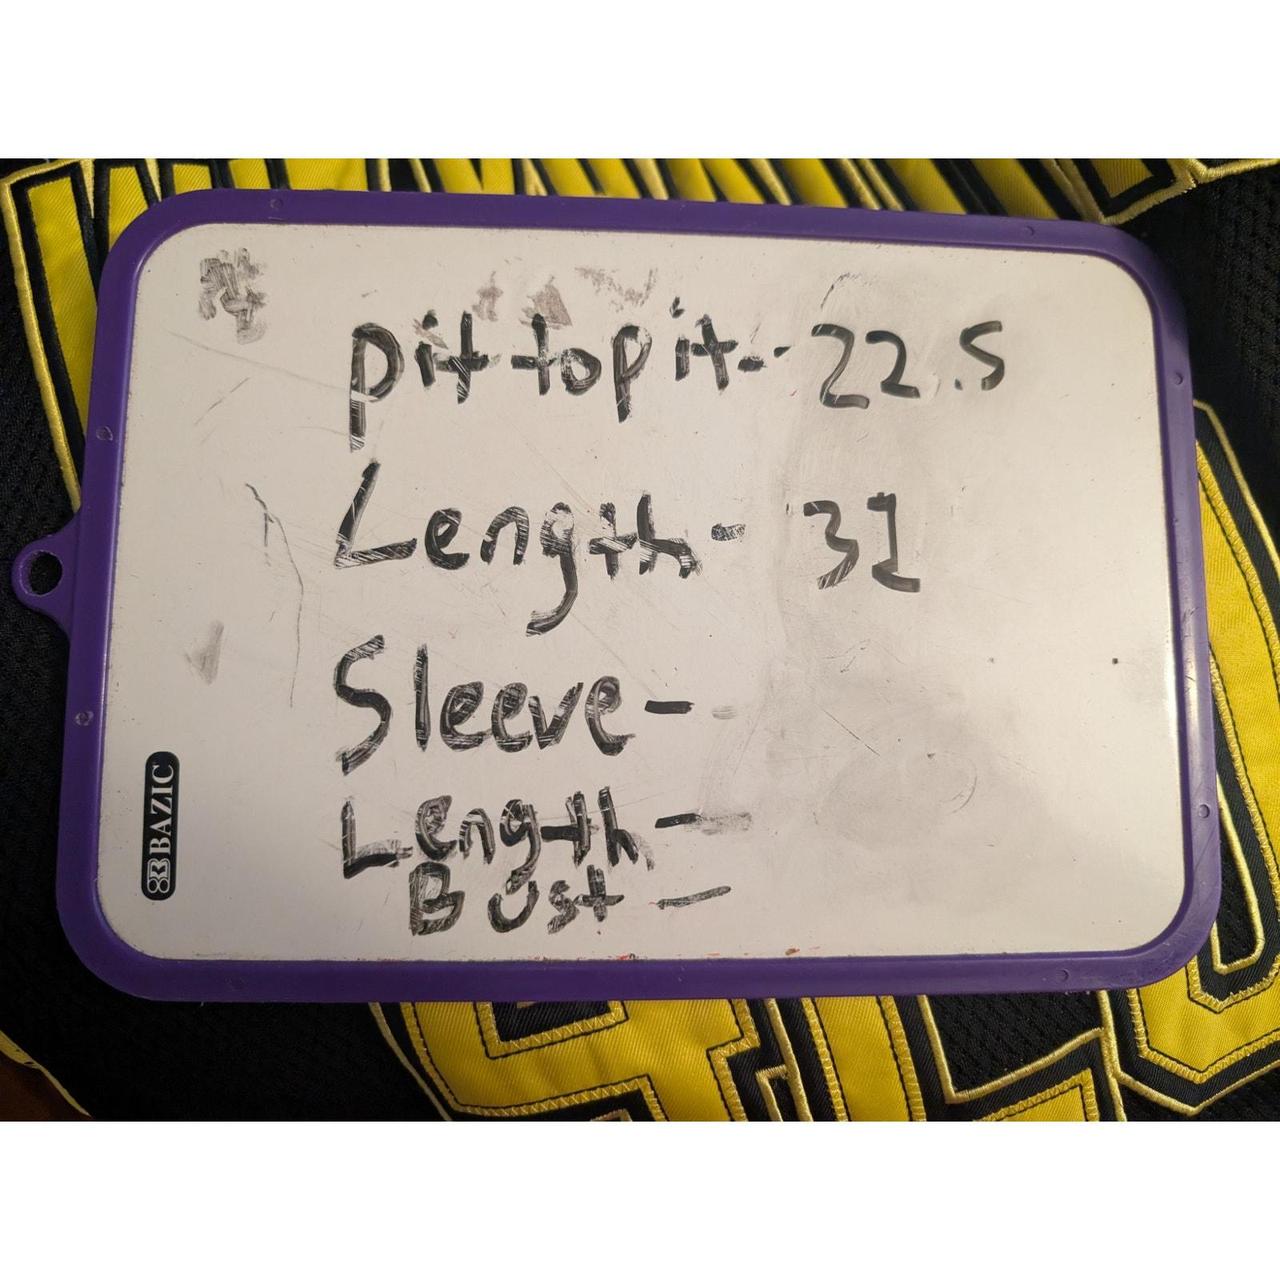 pit to pit-- 22.5
Length- 31
Sleeve-
Length-
Bust-
BAZIC